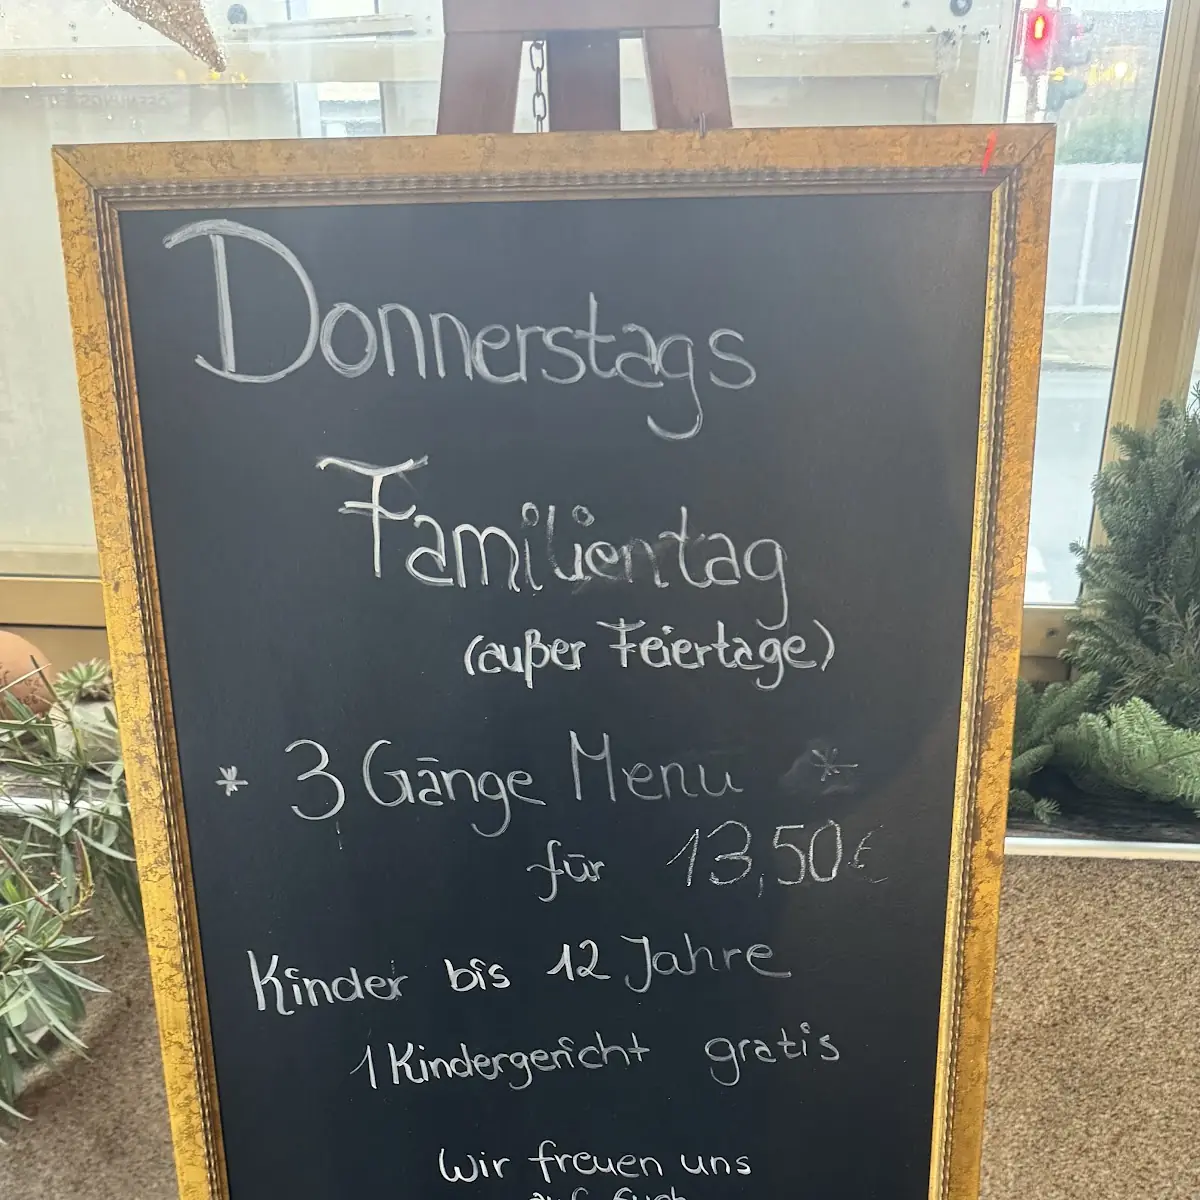 Donnerstags
Familientag
(außer Feiertage)
* 3 Gänge Menu *
für 13,50€
Kinder bis 12 Jahre
1 Kindergericht gratis
Wir freuen uns
auf Euch